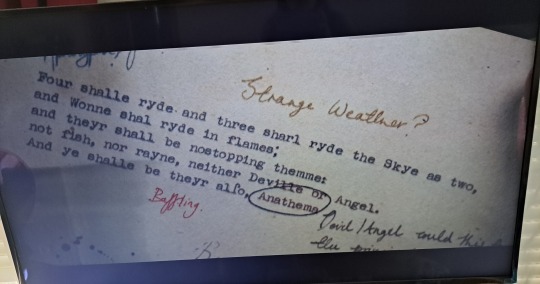 Four shalle ryde and three sharl ryde the Skye as two,
and Wonne shal ryde in flames;
and theyr shall be nostopping themme:
not fish, nor rayne, neither Deville or Angel.
And ye shalle be theyr alſo, Anathema
Strange Weather?
Baffling.
Devil/Angel could this